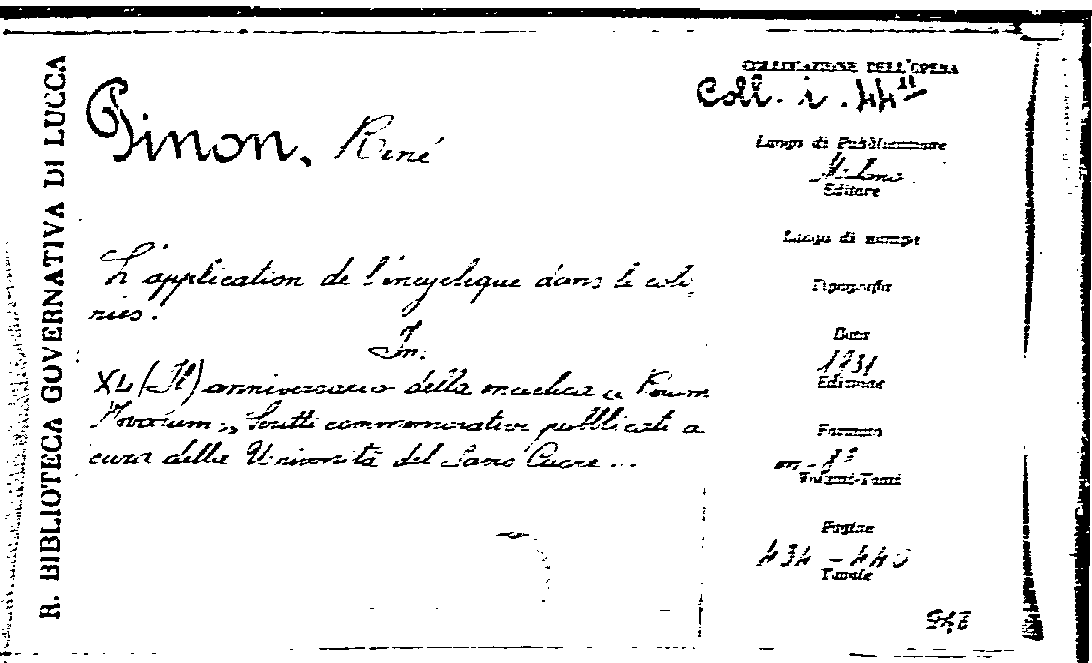 R. BIBLIOTECA GOVERNATIVA DI LUCCA
Pinon, René
L'application de l'encyclique dans le colo
nies.
In.
XL (Il) anniversario della enciclica "Rerum
Novarum" Scritti commemorativi pubblicati a
cura della Università del Sacro Cuore ...
COLLOCAZIONE DELL'OPERA
Coll. i. 44
Luogo di Pubblicazione
Milano
Editore
Luogo di stampa
Tipografia
Data
1931
Edizione
Formato
in-8°
Volumi-Tomi
Pagine
434-440
Tavole